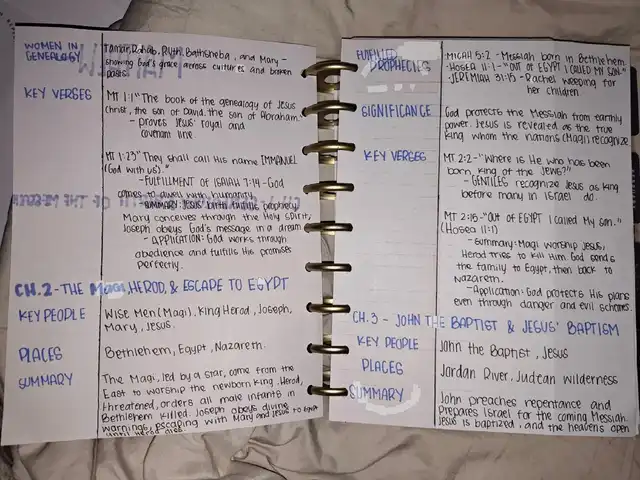 WOMEN IN GENEALOGY
Tamar, Rahab, Ruth, Bathsheba, and Mary -
showing God's grace across cultures and broken
pasts
KEY VERSES
MT 1:1 "The book of the genealogy of Jesus
Christ, the son of David, the son of Abraham.
- proves Jesus' royal and
covenant line
MT 1:23 "They shall call his name IMMANUEL
(God with us)."
- FULFILLMENT OF ISAIAH 7:14 - God
comes to dwell with humanity.
- SUMMARY: Jesus' birth fulfills prophecy
Mary conceives through the Holy Spirit,
Joseph obeys God's message in a dream
- APPLICATION: God works through
obedience and fulfills His promises
perfectly.
CH.2 - THE Magi, HEROD, & ESCAPE TO EGYPT
KEY PEOPLE
Wise Men (Magi), King Herod, Joseph,
Mary, Jesus.
PLACES
Bethlehem, Egypt, Nazareth.
SUMMARY
The Magi, led by a star, come from the
East to worship the newborn king. Herod,
threatened, orders all male infants in
Bethlehem killed. Joseph obeys divine
warnings, escaping with Mary and Jesus to Egypt
until Herod dies.
FULFILLED
PROPHECIES
MICAH 5:2 - Messiah born in Bethlehem
- HOSEA 11:1 - "OUT OF EGYPT I CALLED MY SON."
- JEREMIAH 31:15 - Rachel weeping for
her children
SIGNIFICANCE
God protects the Messiah from earthly
power. Jesus is revealed as the true
king whom the nations (Magi) recognize
KEY VERSES
MT 2:2 - "Where is He who has been
born, king of the JEWS?"
- GENTILES recognize Jesus as king
before many in Israel do.
MT 2:15 - "Out of EGYPT I called My son."
(Hosea 11:1)
- Summary: Magi worship Jesus,
Herod tries to kill Him. God sends
the family to Egypt, then back to
Nazareth.
- Application: God protects His plans
even through danger and evil schemes.
CH.3 - JOHN THE BAPTIST & JESUS' BAPTISM
KEY PEOPLE
John the Baptist, Jesus
PLACES
Jordan River, Judean wilderness
SUMMARY
John preaches repentance and
Prepares Israel for the coming Messiah.
Jesus is baptized, and the heavens open